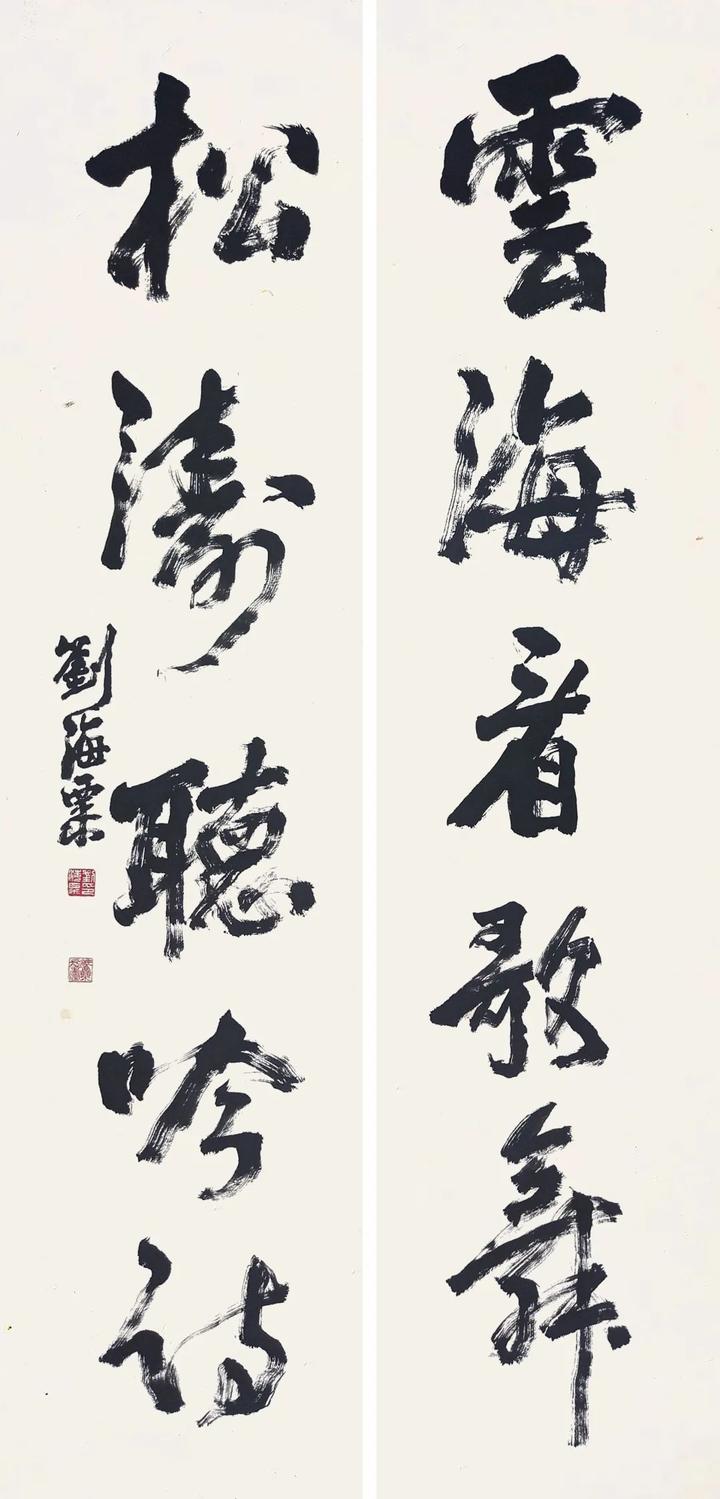 雲海看歌舞
松濤聽吟詩
劉海粟